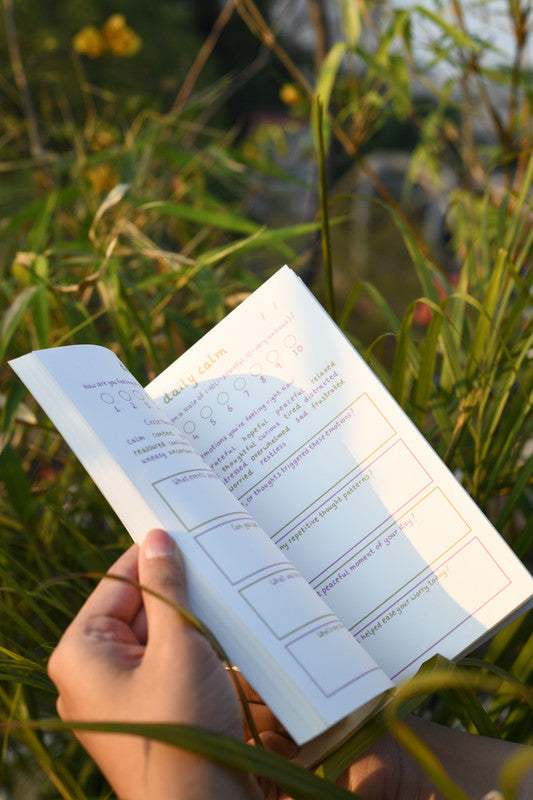 How are you feel
1 2 3
Calm conte
reassured
uneasy uncerta
What events
Can you
What wa
What h
daily calm
n a scale of 1 (peaceful) to 10 (very anxious)?
4 5 6 7 8 9 10
motions you're feeling right now
rateful hopeful peaceful relaxed
thoughtful curious tired distracted
stressed overwhelmed sad frustrated
worried restless
, or thoughts triggered these emotions?
my repetitive thought patterns?
t peaceful moment of your day?
t helped ease your worry today?